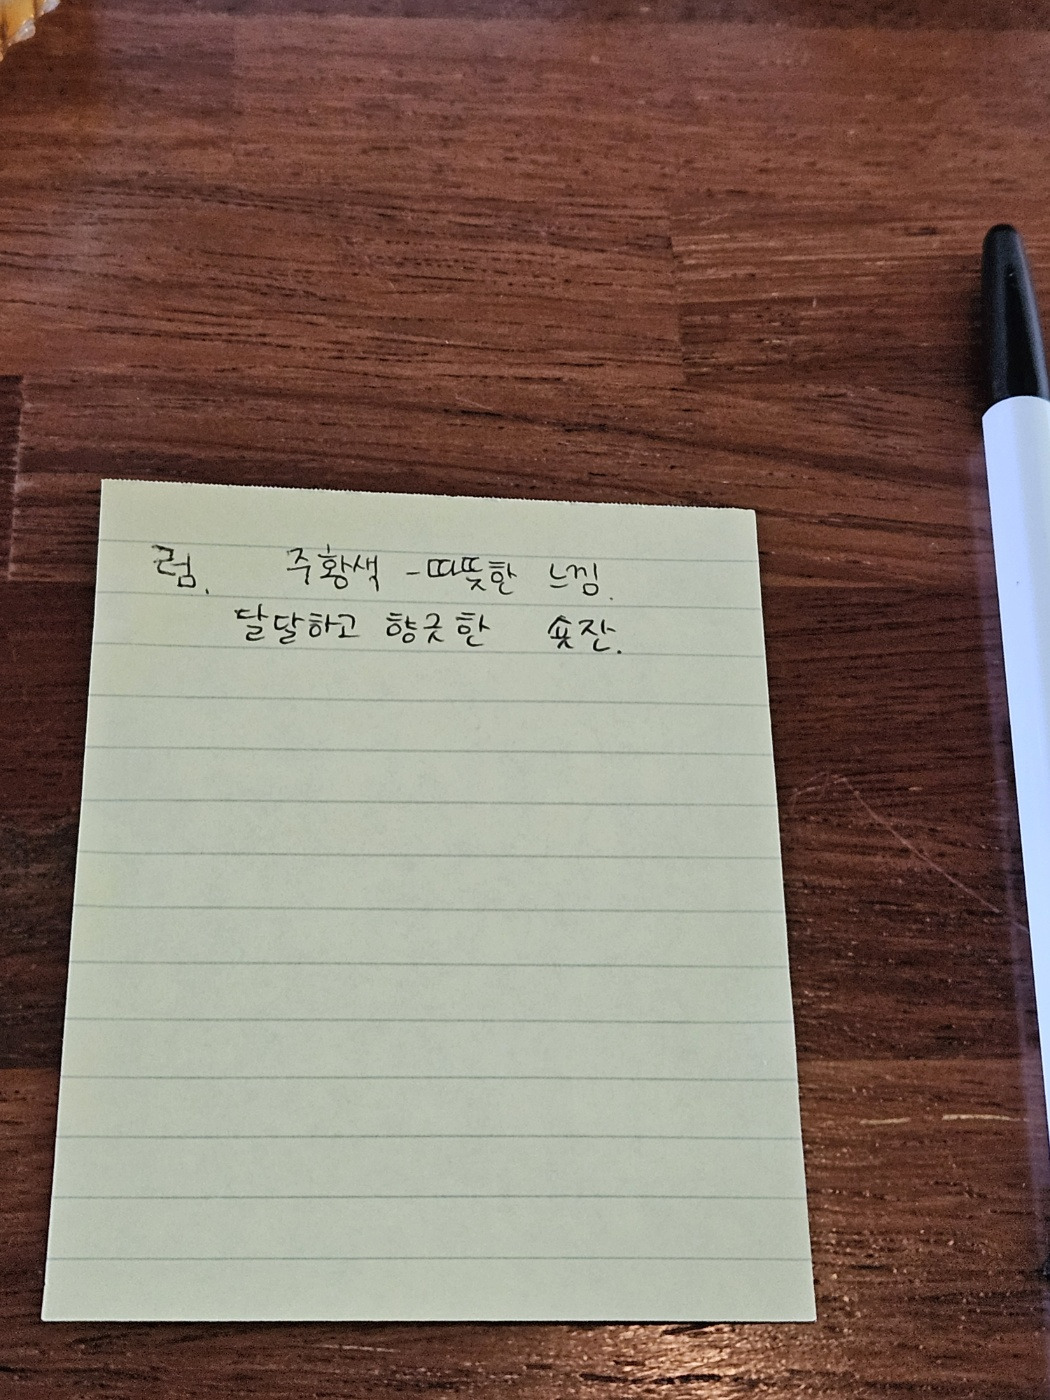 럼. 주황색 - 따뜻한 느낌.
달달하고 향긋한 숏잔.